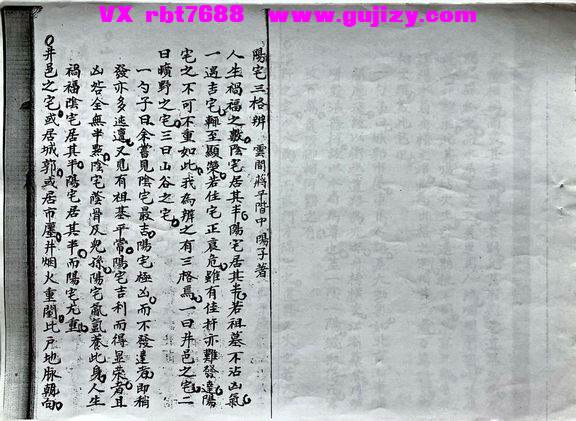 VX rbt7688 www.gujizy.com
陽宅三格辨 雲間蔣平階中陽子著
人生禍福之數陰宅居其半陽宅居其半若祖墓不沾凶氣
一遇吉宅輒至顯榮若住宅正衰危雖有佳扞亦難發達陽
宅之不可不重如此我為辨之有三格焉一曰井邑之宅二
曰曠野之宅三曰山谷之宅
一勺子曰余嘗見陰宅最吉陽宅極凶而不發達者即稍
發亦多迍邅又見有祖墓平常陽宅吉利而得显荣者且
凶咎全無半點陰宅蔭骨及児孫陽宅氣養此身人生
禍福陰宅居其半陽宅居其半而陽宅尤重
井邑之宅或居城郭或居市廛井烟火重閣比戶地脉朝向